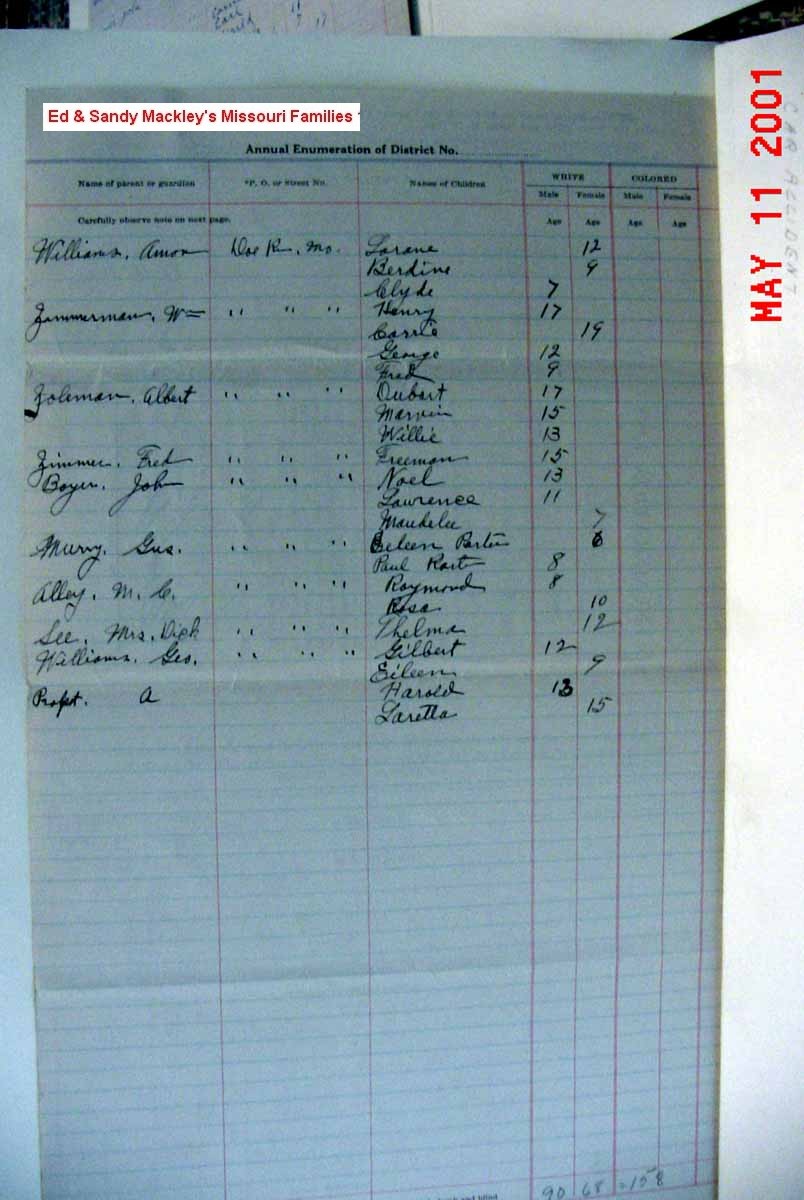 MAY 11 2001
CAR ACCIDENT
Ed & Sandy Mackley's Missouri Families
Annual Enumeration of District No.
Name of parent or guardian *P. O. or Street No. Names of Children WHITE COLORED
Male Female Male Female
Carefully observe note on next page. Age Age Age Age
Williams, Amos Doe Run, Mo. Lorane 12
Berdine 9
Clyde 7
Zimmerman, Wm " " " Henry 17
Carrie 19
George 12
Fred 9
Zoleman, Albert " " " Dubart 17
Marvin 15
Willie 13
Zimmer, Fred " " " Freeman 15
Boyer, John " " " Noel 13
Lawrence 11
Maudelee 7
Murry, Gus. " " " Eileen 6
Paul 8
Alley, M. C. " " " Raymond 8
Rosa 10
See, Mrs. Dick " " " Thelma 12
Williams, Geo. " " " Gilbert 12
Eileen 9
Propst. A Harold 13
Laretta 15
and blind
90 68 = 158